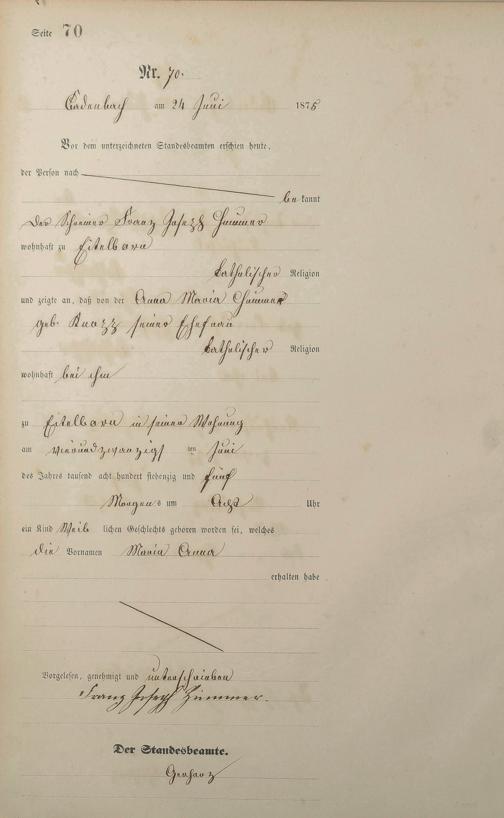 Seite 70
Nr. 70.
Cadenbach am 24 Juni 1875
Vor dem unterzeichneten Standesbeamten erschien heute,
der Person nach
be kannt
der Schreiner Franz Joseph Zimmer
wohnhaft zu Eitelborn
katholischer Religion
und zeigte an, daß von der Anna Maria Zimmer
geb. Knopp seiner Ehefrau
katholischer Religion
wohnhaft bei ihm
zu Eitelborn in seiner Wohnung
am vierundzwanzigsten Juni
des Jahres tausend acht hundert siebenzig und fünf
Morgens um Acht Uhr
ein Kind Weib lichen Geschlechts geboren worden sei, welches
die Vornamen Maria Anna
erhalten habe
Vorgelesen, genehmigt und unterschrieben
Franz Joseph Zimmer.
Der Standesbeamte.
Gerharz